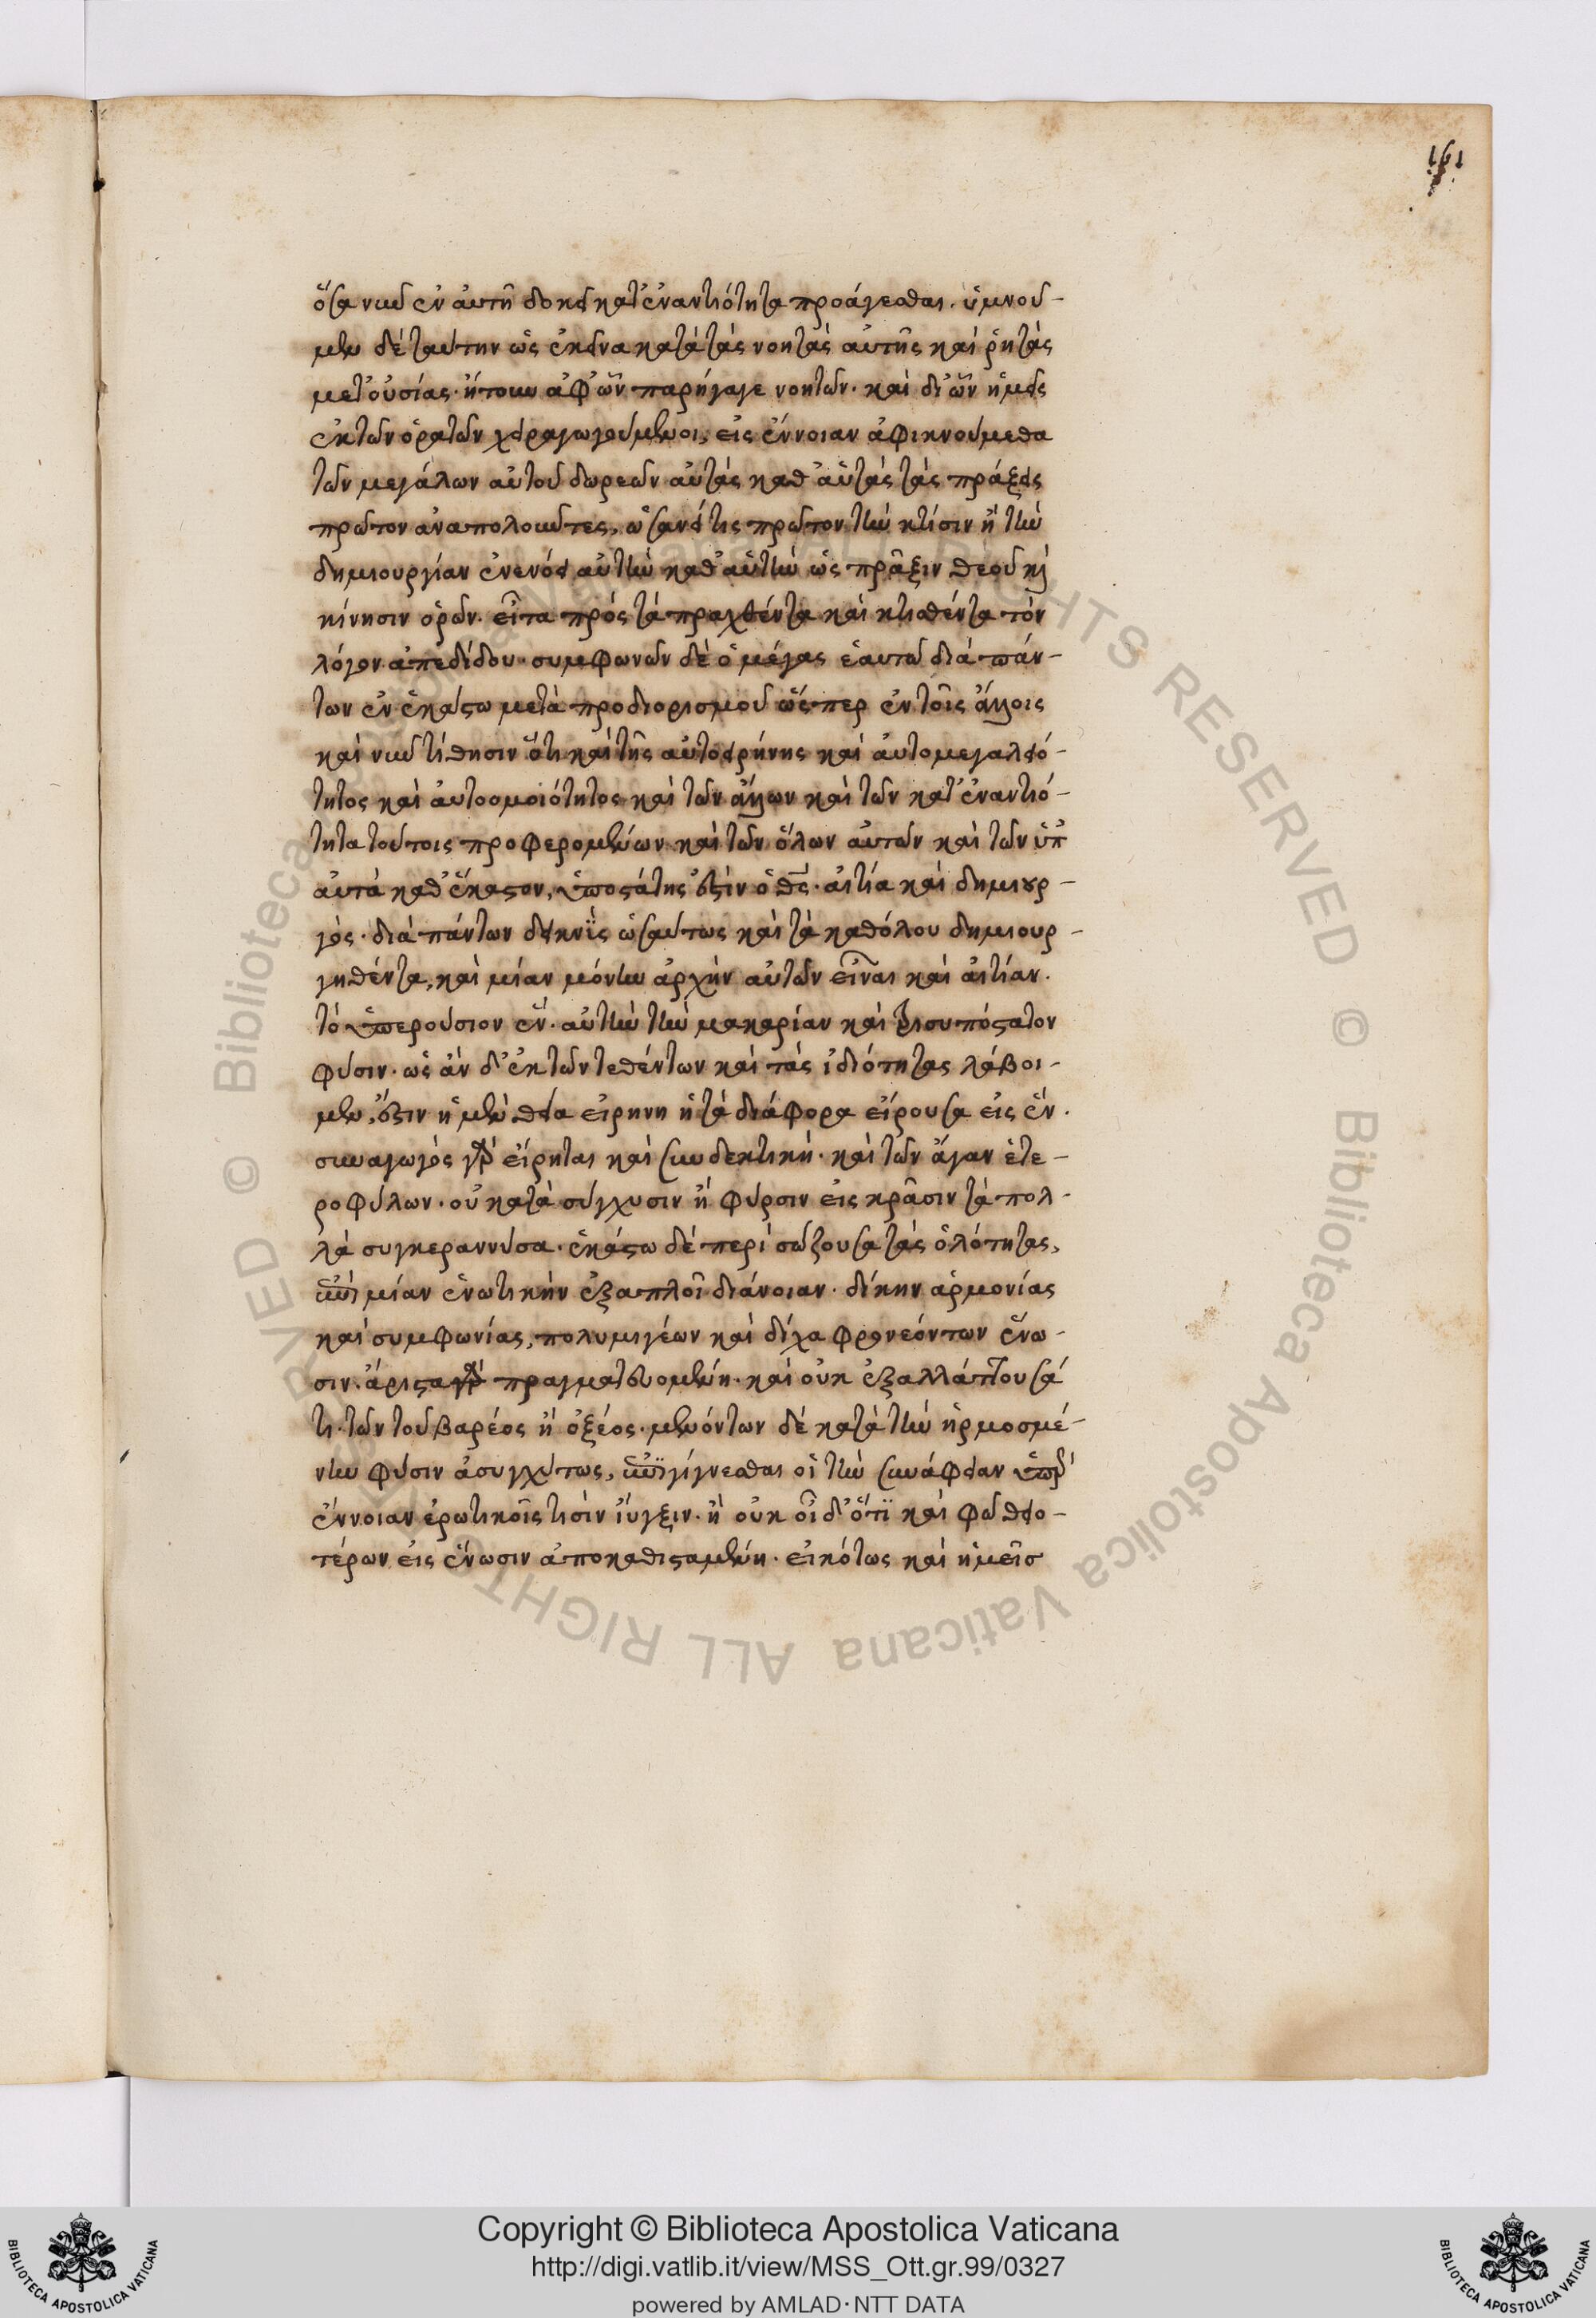 161
ὅσα νῦν ἐν αὐτῆ δοκεῖ κατ' ἐναντιότητα προάγεσθαι. ὑμνοῦ-
μεν δὲ ταύτην ὡς ἐκεῖνα κατὰ τὰς νοητὰς αὐτῆς καὶ ῥητὰς
μετουσίας· ἤτουν ἀφ' ὧν παρήγαγε νοητῶν· καὶ δι' ὧν ἡμεῖς
ἐκ τῶν ὁρατῶν χειραγωγούμενοι, εἰς ἔννοιαν ἀφικνούμεθα
τῶν μεγάλων αὐτοῦ δωρεῶν αὐτὰς καθ' αὑτὰς τὰς πράξεις
πρῶτον ἀναπολοῦντες, ὡσανεί τις πρῶτον τὴν κτίσιν ἢ τὴν
δημιουργίαν ἐνενόει αὐτὴν καθ' αὑτὴν ὡς πρᾶξιν θεοῦ καὶ
κίνησιν ὁρῶν. εἶτα πρὸς τὰ πραχθέντα καὶ κτισθέντα τὸν
λόγον ἀπεδίδου· συμφωνῶν δὲ ὁ μέγας ἑαυτῶ διὰ πάν-
των ἐν ἑκάστω μετὰ προδιορισμοῦ ὥσπερ ἐν τοῖς ἄλλοις
καὶ νῦν τίθησιν ὅτι καὶ τῆς αὐτοειρήνης καὶ αὐτομεγαλειό-
τητος καὶ αὐτοομοιότητος καὶ τῶν ἄλλων καὶ τῶν κατ' ἐναντιό-
τητα τούτοις προφερομένων καὶ τῶν ὅλων αὐτῶν καὶ τῶν ὑπ'
αὐτὰ καθ' ἕκαστον, ὑποστάτης ἐστὶν ὁ θς. αἰτία καὶ δημιουρ-
γός· διὰ πάντων δεικνὺς ὡσαύτως καὶ τὰ καθόλου δημιουρ-
γηθέντα, καὶ μίαν μόνην ἀρχὴν αὐτῶν εἶναι καὶ αἰτίαν.
τὸ ὑπερούσιον ἕν. αὐτὴν τὴν μακαρίαν καὶ τρισυπόστατον
φύσιν. ὡς ἂν δ' ἐκ τῶν τεθέντων καὶ τὰς ἰδιότητας λάβοι-
μεν, ἔστιν ἡ μὲν θεία εἰρήνη ἡ τὰ διάφορα εἴρουσα εἰς ἕν.
συναγωγὸς γὰρ εἴρηται καὶ συνδεκτική. καὶ τῶν ἄγαν ἑτε-
ροφύλων. οὐ κατὰ σύγχυσιν ἢ φύρσιν εἰς κρᾶσιν τὰ πολ-
λὰ συγκεραννύσα. ἑκάστω δὲ περισώζουσα τὰς ὁλότητας,
ἐπὶ μίαν ἑνωτικὴν ἐξαπλοῖ διάνοιαν. δίκην ἁρμονίας
καὶ συμφωνίας, πολυμιγέων καὶ δίχα φρονεόντων ἕνω-
σιν. ἄριστα γὰρ πραγματευομένη. καὶ οὐκ ἐξαλλάττουσά
τι τῶν τοῦ βαρέος ἢ ὀξέος· μενόντων δὲ κατὰ τὴν ἡρμοσμέ-
νην φύσιν ἀσυγχύτως, ἐπιγίγνεσθαι οἱ τὴν συνάφειαν ὑπὲρ
ἔννοιαν ἐρωτικοῖς τισὶν ἴυγξιν. ἢ οὐκ οἶδ' ὅτι καὶ φῶ θειο-
τέρων εἰς ἕνωσιν ἀποκαθισταμένη. εἰκότως καὶ ἡμεῖς
Copyright © Biblioteca Apostolica Vaticana
http://digi.vatlib.it/view/MSS_Ott.gr.99/0327
powered by AMLAD·NTT DATA